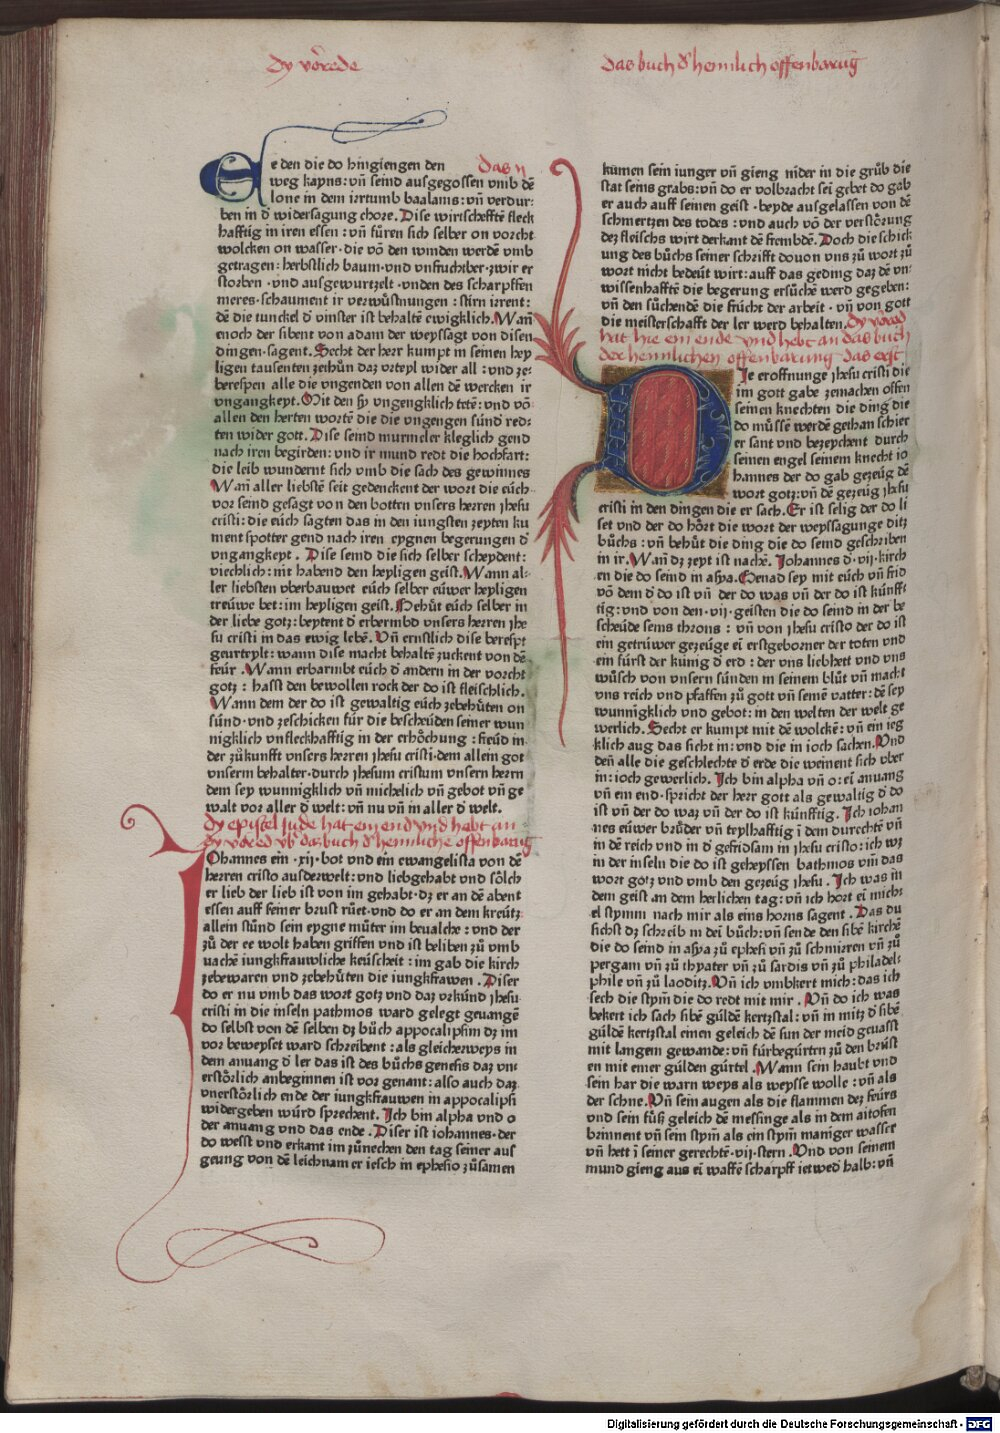 dy vorrede
das buch d' heimlich offenbaruḡ
das ij
We den die do hingiengen den
weg kayns: vn̄ seind ausgegossen vmb dē
lone in dem irrtumb baalams: vn̄ verdur⸗
ben in d' widersagung chore. Dise wirtschefftē fleck
hafftig in iren essen: vn̄ fůren sich selber on vorcht
wolcken on wasser·die vō den winden werdē vmb
getragen: herbstlich baum·vnd vnfruchtber·zwir er
storben·vnd ausgewurtzelt·vnden des scharpffen
meres·schaument ir verwůstnungen: stirn irrent:
dē die tunckel d' vinster ist behaltē ewigklich. Wan̄
enoch der sibent von adam der weyssagt von disen
dingen·sagent. Secht der herr kumpt in seinen hey
ligen tausenten zethůn daz vrteyl wider all: vnd ze⸗
berespen alle die vngenden von allen dē wercken ir
vngangkeyt. Mit den sy vngengklich tetē: vnd vō
allen den herten wortē die die vngengen sünd' red⸗
ten wider gott. Dise seind murmeler kleglich gend
nach iren begirden: vnd ir mund redt die hochfart:
die leib wundernt sich vmb die sach des gewinnes
Wan̄ aller liebstē seit gedenckent der wort die eüch
vor seind gesagt von den botten vnsers herren jhesu
cristi: die eüch sagten das in den iungsten zeyten ku
ment spotter gend nach iren eygnen begerungen d'
vngangkeyt. Dise seind die sich selber scheydent:
viechlich: nit habend den heyligen geist. Wann al⸗
ler liebsten vberbauwet eüch selber eüwer heyligen
treüwe bet: im heyligen geist. Behůt eüch selber in
der liebe gotz: beytent d' erbermbd vnsers herren jhe
su cristi in das ewig lebē. Vn̄ ernstlich dise berespt
geurteylt: wann dise macht behaltē zuckent von dē
feür. Wann erbarmbt eüch d' andern in der vorcht
gotz: hasst den bewollen rock der do ist fleischlich.
Wann dem der do ist gewaltig eüch zebehůten on
sünd·vnd zeschicken für die bescheüden seiner wun
nigklich vnfleckhafftig in der erhöchung: freüd in⸗
der zůkunfft vnsers herren jhesu cristi·dem allein got
vnserm behalter·durch jhesum cristum vnsern herrn
dem sey wunnigklich vn̄ michelich vn̄ gebot vn̄ ge
walt vor aller d' welt: vn̄ nu vn̄ in aller d' welt.
dy epistel jude hat ein end vnd hebt an
dy vored vb' das buch d' heimliche offenbaruḡ
IOhannes ein·xij·bot vnd ein ewangelista von dē
herren cristo ausderwelt: vnd liebgehabt vnd sölch
er lieb der lieb ist von im gehabt·dz er an dē abent
essen auff seiner brust růet·vnd do er an dem kreütz⸗
allein stůnd sein eygne můter im beualche: vnd der
zů der ee wolt haben griffen vnd ist beliben zů vmb
uachē iungkfrauwliche keüscheit: im gab die kirch
zebewaren vnd zebehůten die iungkfrawen. Diser
do er nu vmb das wort gotz vnd daz vrkünd jhesu
cristi in die inseln pathmos ward gelegt geuangē
do selbst von dē selben dz bůch appocalipsim dz im
vor beweyset ward schreibent: als gleicherweys in
dem anuang d' ler das ist des bůchs genesis daz vn⸗
erstörlich anbeginnen ist vor genant: also auch daz
vnerstörlich ende der iungkfrauwen in appocalipsi
widergeben würd sprechent. Ich bin alpha vnd o
der anuang vnd das ende. Diser ist iohannes·der
do wesst vnd erkant im zůnechen den tag seiner aus
geung von dē leichnam er iesch in ephesio zůsamen
kumen sein iunger vn̄ gieng nider in die grůb die
stat seins grabs: vn̄ do er volbracht sei gebet do gab
er auch auff seinen geist·beyde ausgelassen von dē
schmertzen des todes: vnd auch vō der verstörung
dez fleischs wirt derkant dē frembdē. Doch die schick
ung des bůchs seiner schrifft douon vns zů wort zů
wort nicht bedeüt wirt: auff das geding daz dē vn⸗
wissenhafftē die begerung ersůchē werd gegeben:
vn̄ den sůchendē die frücht der arbeit·vn̄ von gott
die meisterschafft der ler werd behalten. dy vored
hat hie ein ende vnd hebt an das buch
der heimlichen offenbarung das erst
DIe eroffnunge jhesu cristi die
im gott gabe zemachen offen
seinen knechten die ding die
do můssē werdē gethan schier
er sant vnd bezeychent durch
seinen engel seinem knecht io
hannes der do gab gezeüg dē
wort gotz: vn̄ dē gezeüg jhesu
cristi in den dingen die er sach. Er ist selig der do li
set vnd der do hört die wort der weyssagunge ditz
bůchs: vn̄ behůt die ding die do seind geschriben
in ir. Wan̄ dz zeyt ist nachē. Johannes d'·vij·kirch
en die do seind in asya. Genad sey mit eüch vn̄ frid
vō dem d' do ist vn̄ der do was vn̄ der do ist künff⸗
tig: vnd von den·vij·geisten die do seind in der be
scheüde seins throns: vn̄ von jhesu cristo der do ist
ein getrüwer gezeüge ei erstgeborner der toten vnd
ein fürst der künig d' erd: der vns liebhett vnd vns
wůsch von vnsern sünden in seinem blůt vn̄ macht
vns reich vnd pfaffen zů gott vn̄ seinē vatter: dē sey
wunnigklich vnd gebot: in den welten der welt ge
werlich. Secht er kumpt mit dē wolckē: vn̄ ein ieg
klich aug das sicht in: vnd die in ioch sachen. Vnd
den̄ alle die geschlechte d' erde die weinent sich vber
in: ioch gewerlich. Ich bin alpha vn̄ o: ei anuang
vn̄ ein end·spricht der herr gott als gewaltig d' do
ist vn̄ der do waz vn̄ der do ist künfftig. Ich iohan
nes eüwer brůder vn̄ teylhafftig ī dem durechtē vn̄
in dē reich vnd in d' gefridsam in jhesu cristo: ich wz
in der inseln die do ist geheyssen bathmos vm̄ das
wort gotz vnd vmb den gezeüg jhesu. Ich was in
dem geist an dem herlichen tag: vn̄ ich hort ei michi
el stymm nach mir als eins horns sagent. Das du
sichst dz schreib in dei bůch: vn̄ sende den sibē kirchē
die do seind in asya zů ephesi vn̄ zů schmirren vn̄ zů
pergam vn̄ zů thyater vn̄ zů sardis vn̄ zů philadel⸗
phile vn̄ zů laoditz. Vn̄ ich vmbkert mich: das ich
sech die stym̄ die do redt mit mir. Vn̄ do ich was
bekert ich sach sibē güldē kertzstal: vn̄ in mitz d' sibē
güldē kertzstal einen geleich dē sun der meid geuasst
mit langem gewande: vn̄ fürbegürten zů den brüst
en mit einer gülden gürtel. Wann sein haubt vnd
sein har die warn weys als weysse wolle: vn̄ als
der schne. Vn̄ sein augen als die flammen dez feürs
vnd sein füß geleich dē messinge als in dem aitofen
brinnent vn̄ sein stym̄ als ein stym̄ maniger wasser
vn̄ hett ī seiner gerechtē·vij·stern. Vnd von seinem
mund gieng aus ei waffē scharpff ietwed' halb: vn̄
Digitalisierung gefördert durch die Deutsche Forschungsgemeinschaft - DFG